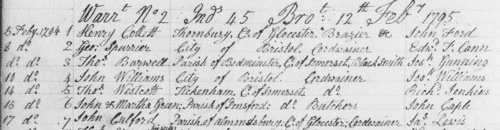 Warrt No 2 Ind 45 Brot 12th Feby 1795
5 Feby. 1794 1 Henry Collett Thornbury, C. of Glocester Brazier &c John Ford
8 do 2 Geo. Spurrier City of Bristol, Cordwainer Edwd. T. Cann
do do 3 Thos. Barwell Parish of Bedminster, C. of Somerset, Black Smith Jos. Gunning
10 do 4 John Williams City of Bristol Cordwainer Jos. Williams
14 do 5 Thos. Westcott Tickenham, C. of Somerset, do Richd. Jenkins
16 do 6 John & Martha Green; Parish of do Butchers John Caple
17 do 7 John Parish of almondsbury C. of Glocester; Cordwainer Jas. Lewis